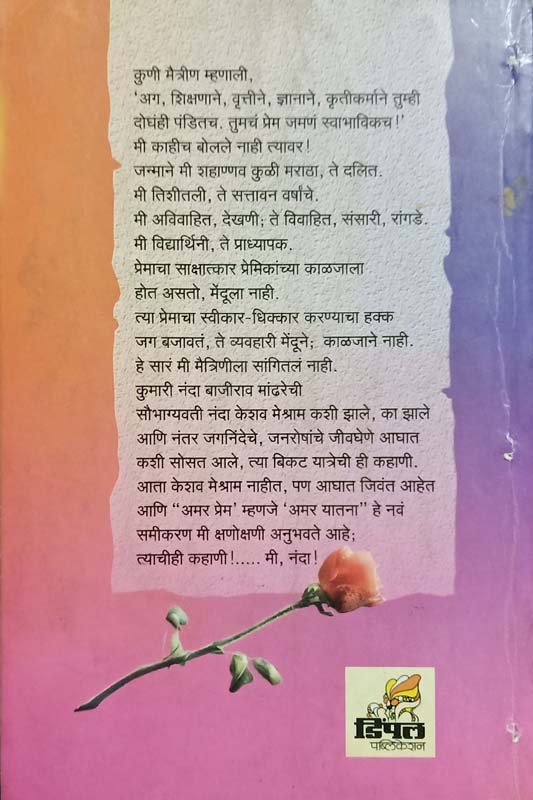 कुणी मैत्रीण म्हणाली,
'अग, शिक्षणाने, वृत्तीने, ज्ञानाने, कृतीकर्माने तुम्ही
दोघंही पंडितच. तुमचं प्रेम जमणं स्वाभाविकच!'
मी काहीच बोलले नाही त्यावर!
जन्माने मी शहाण्णव कुळी मराठा, ते दलित.
मी तिशीतली, ते सत्तावन वर्षांचे.
मी अविवाहित, देखणी; ते विवाहित, संसारी, रांगडे.
मी विद्यार्थिनी, ते प्राध्यापक.
प्रेमाचा साक्षात्कार प्रेमिकांच्या काळजाला
होत असतो, मेंदूला नाही.
त्या प्रेमाचा स्वीकार-धिक्कार करण्याचा हक्क
जग बजावतं, ते व्यवहारी मेंदूने; काळजाने नाही.
हे सारं मी मैत्रिणीला सांगितलं नाही.
कुमारी नंदा बाजीराव मांढरेची
सौभाग्यवती नंदा केशव मेश्राम कशी झाले, का झाले
आणि नंतर जगनिंदेचे, जनरोषांचे जीवघेणे आघात
कशी सोसत आले, त्या बिकट यात्रेची ही कहाणी.
आता केशव मेश्राम नाहीत, पण आघात जिवंत आहेत
आणि "अमर प्रेम' म्हणजे 'अमर यातना" हे नवं
समीकरण मी क्षणोक्षणी अनुभवते आहे;
त्याचीही कहाणी!..... मी, नंदा!
डिंपल
पब्लिकेशन